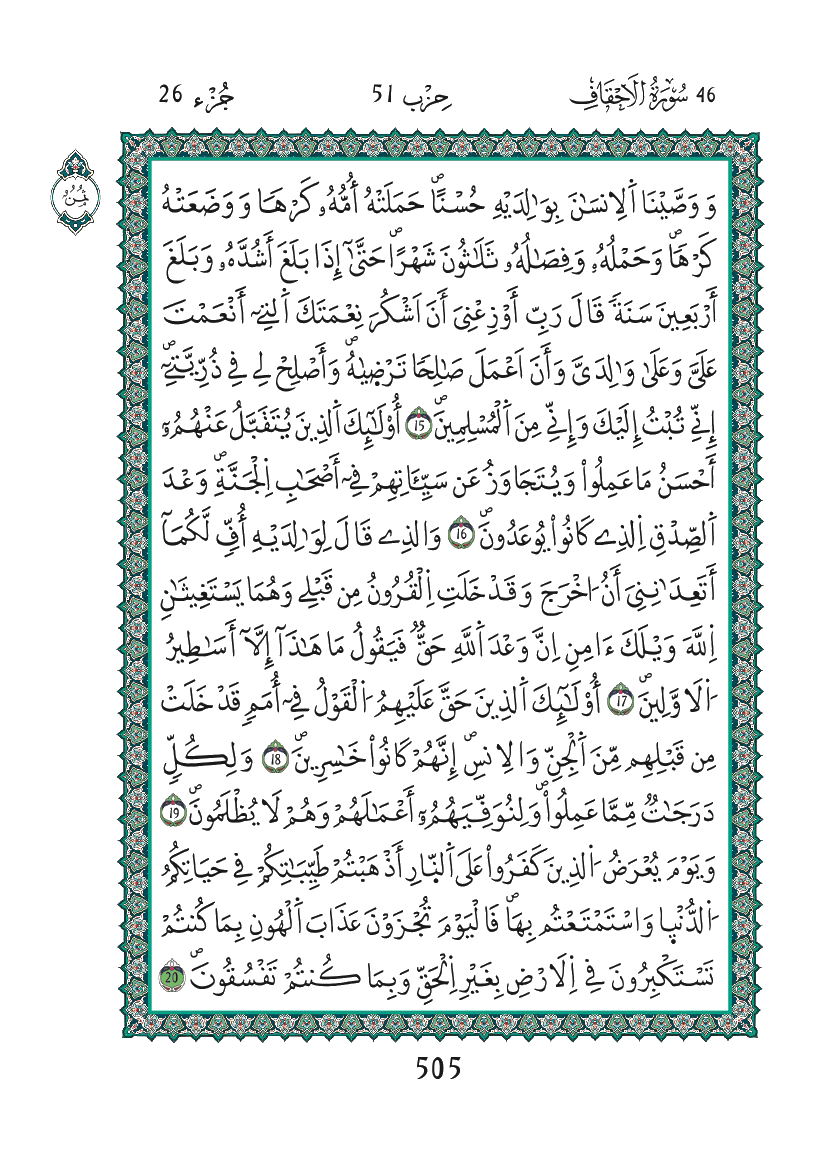 46 سُورَةُ الَاحْقَافِ حِزْب 51 جُزْء 26
ثُمُنُ
وَوَصَّيْنَا اَ۬لِانسَٰنَ بِوَٰلِدَيْهِ حُسْناًۖ حَمَلَتْهُ أُمُّهُۥ كَرْهاٗ وَوَضَعَتْهُ
كَرْهاٗۖ وَحَمْلُهُۥ وَفِصَٰلُهُۥ ثَلَٰثُونَ شَهْراًۖ حَتَّىٰٓ إِذَا بَلَغَ أَشُدَّهُۥ وَبَلَغَ
أَرْبَعِينَ سَنَةٗۖ قَالَ رَبِّ أَوْزِعْنِىَ أَنَ اَشْكُرَ نِعْمَتَكَ اَ۬لتِےٓ أَنْعَمْتَ
عَلَىَّ وَعَلَىٰ وَٰلِدَىَّ وَأَنَ اَعْمَلَ صَٰلِحاٗ تَرْض۪يٰهُۖ وَأَصْلِحْ لِے فِے ذُرِّيَّتِيَۖ
إِنِّے تُبْتُ إِلَيْكَ وَإِنِّے مِنَ اَ۬لْمُسْلِمِينَۖ 15 أُوْلَٰٓئِكَ اَ۬لذِينَ يُتَقَبَّلُ عَنْهُمُۥٓ
أَحْسَنُ مَا عَمِلُواْ وَيُتَجَاوَزُ عَن سَيِّـَٔاتِهِمْ فِےٓ أَصْحَٰبِ اِ۬لْجَنَّةِۖ وَعْدَ
اَ۬لصِّدْقِ اِ۬لذِے كَانُواْ يُوعَدُونَۖ 16 وَالذِے قَالَ لِوَٰلِدَيْهِ أُفّٖ لَّكُمَآ
أَتَعِدَٰنِنِىَ أَنُ ا۟خْرَجَ وَقَدْ خَلَتِ اِ۬لْقُرُونُ مِن قَبْلِے وَهُمَا يَسْتَغِيثَٰنِ
اِ۬للَّهَ وَيْلَكَ ءَامِنِ اِنَّ وَعْدَ اَ۬للَّهِ حَقّٞۖ فَيَقُولُ مَا هَٰذَآ إِلَّآ أَسَٰطِيرُ
اُ۬لَاوَّلِينَۖ 17 أُوْلَٰٓئِكَ اَ۬لذِينَ حَقَّ عَلَيْهِمُ اُ۬لْقَوْلُ فِےٓ أُمَمٖ قَدْ خَلَتْ
مِن قَبْلِهِم مِّنَ اَ۬لْجِنِّ وَالِانسِۖ إِنَّهُمْ كَانُواْ خَٰسِرِينَۖ 18 وَلِكُلّٖ
دَرَجَٰتٞ مِّمَّا عَمِلُواْۖ وَلِنُوَفِّيَهُمُۥٓ أَعْمَٰلَهُمْ وَهُمْ لَا يُظْلَمُونَۖ 19
وَيَوْمَ يُعْرَضُ اُ۬لذِينَ كَفَرُواْ عَلَى اَ۬لنّ۪ارِ أَذْهَبْتُمْ طَيِّبَٰتِكُمْ فِے حَيَاتِكُمُ
اُ۬لدُّنْي۪ا وَاسْتَمْتَعْتُم بِهَاۖ فَالْيَوْمَ تُجْزَوْنَ عَذَابَ اَ۬لْهُونِ بِمَا كُنتُمْ
تَسْتَكْبِرُونَ فِے اِ۬لَارْضِ بِغَيْرِ اِ۬لْحَقِّ وَبِمَا كُنتُمْ تَفْسُقُونَۖ 20
505